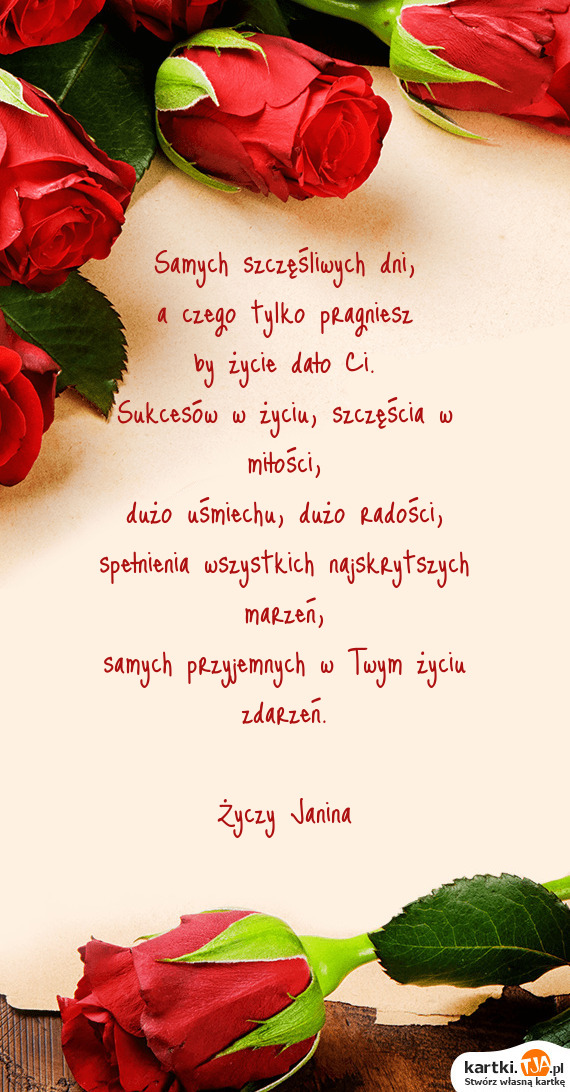 Samych szczęśliwych dni,
a czego tylko pragniesz
by życie dało Ci.
Sukcesów w życiu, szczęścia w
miłości,
dużo uśmiechu, dużo radości,
spełnienia wszystkich najskrytszych
marzeń,
samych przyjemnych w Twym życiu
zdarzeń.
Życzy Janina
kartki.TJA.pl
Stwórz własną kartkę